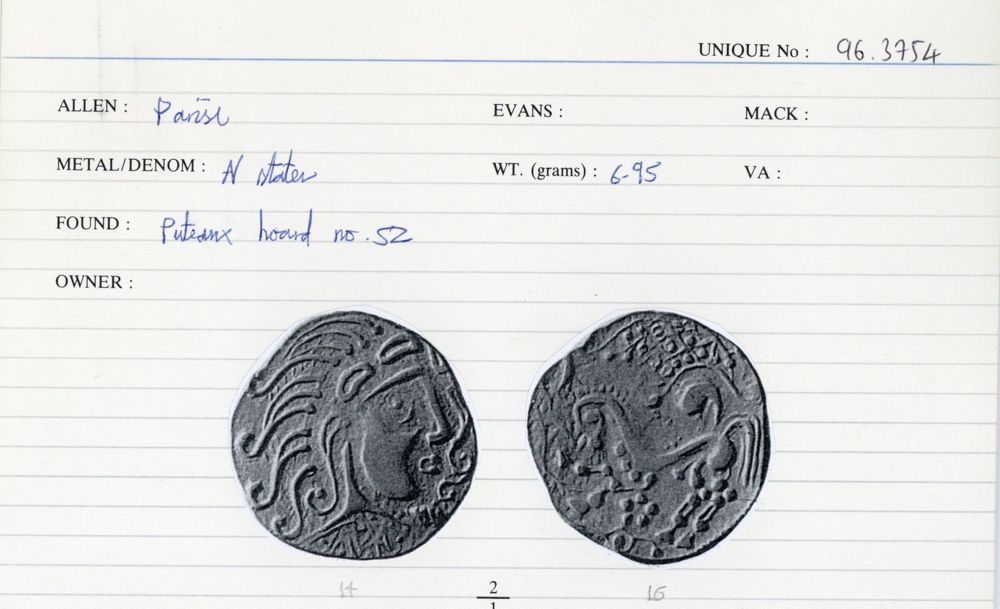 UNIQUE No : 96.3754
ALLEN : Parisi EVANS : MACK :
METAL/DENOM : N stater WT. (grams) : 6.95 VA :
FOUND : Puteaux hoard no. 52
OWNER :
14 2/1 15